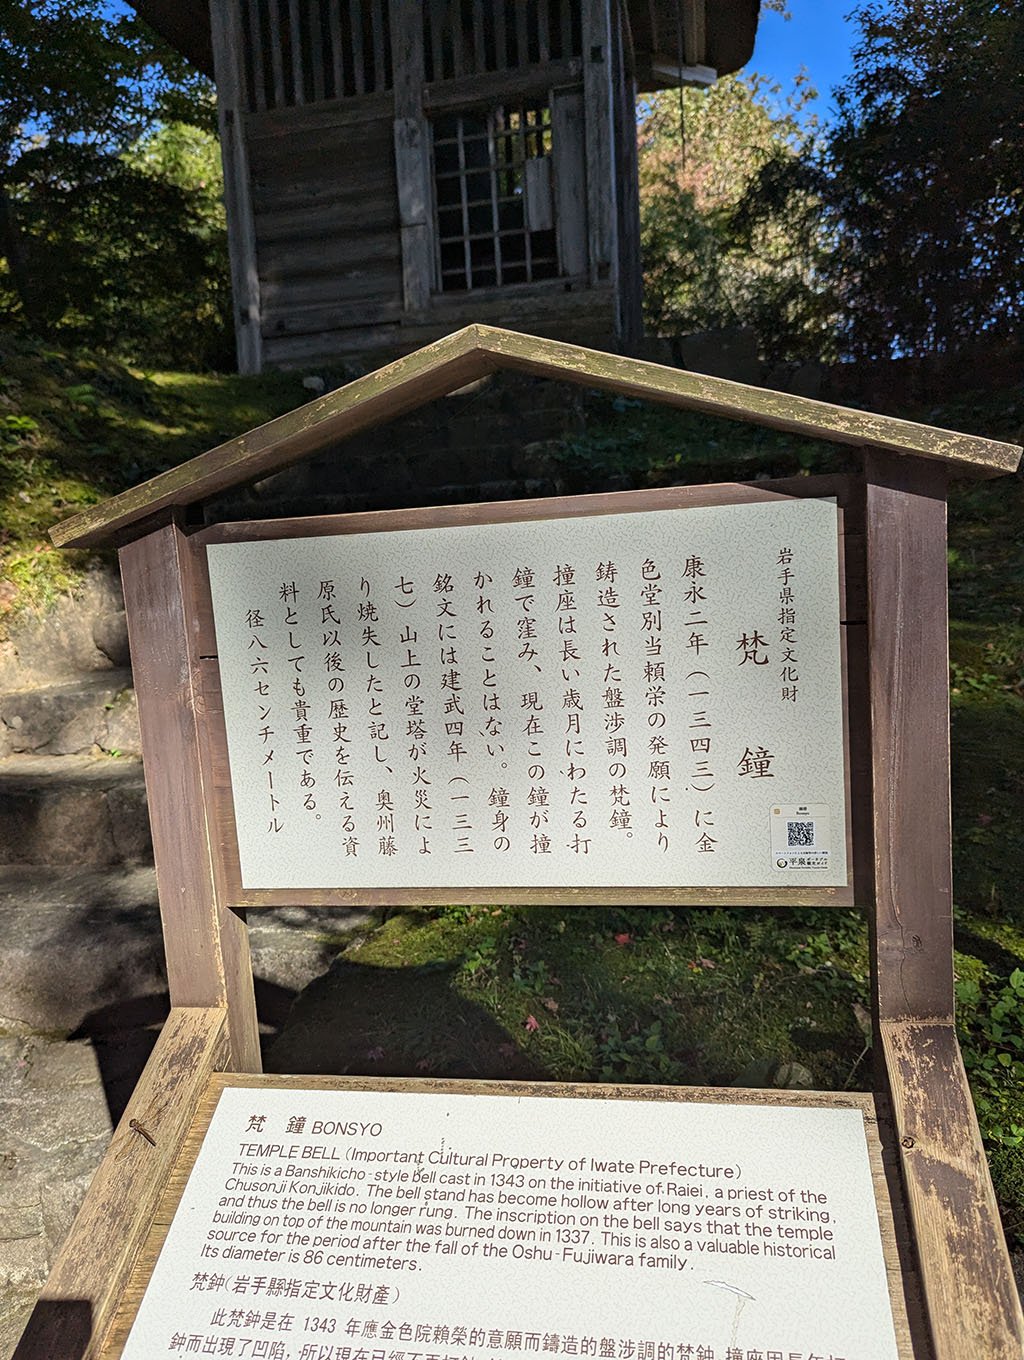 岩手県指定文化財
梵鐘
康永二年（一三四三）に金
色堂別当頼栄の発願により
鋳造された盤渉調の梵鐘。
撞座は長い歳月にわたる打
鐘で窪み、現在この鐘が撞
かれることはない。鐘身の
銘文には建武四年（一三三
七）山上の堂塔が火災によ
り焼失したと記し、奥州藤
原氏以後の歴史を伝える資
料としても貴重である。
径八六センチメートル
梵鐘
Bonsyo
平泉 ポータブル
観光ガイド
梵 鐘 BONSYO
TEMPLE BELL (Important Cultural Property of Iwate Prefecture)
This is a Banshikicho-style bell cast in 1343 on the initiative of Raiei, a priest of the
Chusonji Konjikido. The bell stand has become hollow after long years of striking,
and thus the bell is no longer rung. The inscription on the bell says that the temple
building on top of the mountain was burned down in 1337. This is also a valuable historical
source for the period after the fall of the Oshu-Fujiwara family.
Its diameter is 86 centimeters.
梵鈡(岩手縣指定文化財產)
此梵鈡是在 1343 年應金色院賴榮的意願而鑄造的盤涉調的梵鈡。撞座因長年打
鈡而出現了凹陷，所以現在已經不再打鈡